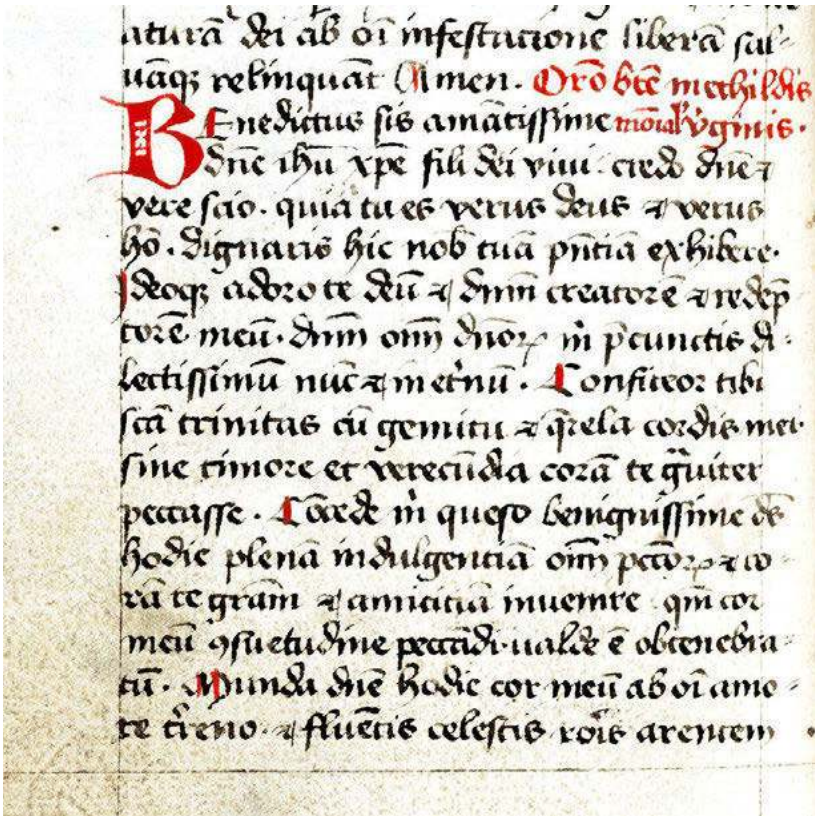 aturā dei ab oī infestacione liberā sal-
uāqꝫ relinquāt Amen. Oro̅ btē mechildis
Enedictus sis amātissime mo̅ial̕ v̕ginis.
dn̄e ihū xp̄e fili dei viui. credo dn̄e ⁊
vere scio. quia tu es verus deus ⁊ verus
hō. dignaris hic nob̄ tuā pn̄tiā exhibere.
Ideoqꝫ adoro te deū ⁊ dnm̄ creatorē ⁊ redēp
torē meū. dnm̄ om̄ dnoꝝ m̄ p̄cunctis di-
lectissimū nūc ⁊ in et̕nū. Confiteor tibi
scā trinitas cū gemitu ⁊ q̄rela cordis mei
sine timore et verecūdia corā te g̃uiter
peccasse. Cōcede m̄ queso benignissime ds̄
hodie plenā indulgentiā om̄ pccōꝝ ⁊ co
rā te gram̄ ⁊ amicitiā inuenire qm̄ cor
meū ꝯsuetudine peccādi ualde ē obtenebra-
tū. Munda dn̄e hodie cor meū ab oī amo-
re t̕reno. ⁊ fluētis celestis roris arentem